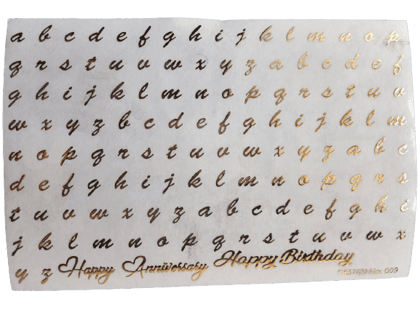 a b c d e f g h i j k l m n o p
q r s t u v w x y z a b c d e f
g h i j k l m n o p q r s t u v
w x y z b c d e f g h i j k l m
n o p q r s t u v w x y z a b c
d e f g h i j k l m n o p q r s
t u v w x y z a b c d e f g h i
j k l m n o p q r s t u v w x
y z Happy Anniversary Happy Birthday
009